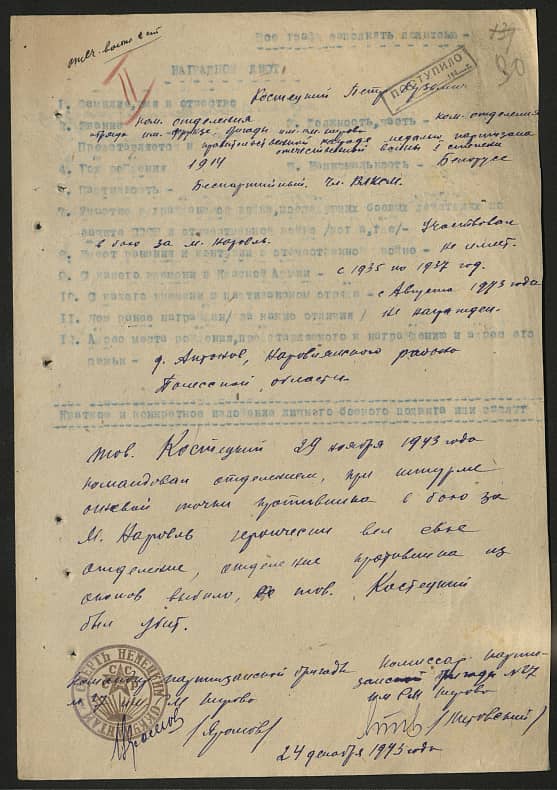 Все графы заполнять полностью -
отеч. войны 2 ст
II
ПОСТУПИЛО
НАГРАДНОЙ ЛИСТ
90
1. Фамилия, имя и отчество Костецкий Петр Кузьмич
2. Звание ком. отделения 3. Должность, часть - ком. отделения
отряда им. Фрунзе бригады им. С.М. Кирова
Представляется к правительственной награде медалью партизана
отечественной войны I степени
4. Год рождения 1914 5. Национальность - Белорусс
6. Партийность - Беспартийный, Чл. ВЛКСМ.
7. Участие в гражданской войне, последующих боевых действиях по
защите СССР и отечественной войне /когда, где/ - Участвовал
в бою за м. Наровль.
8. Имеет ранения и контузии в отечественной войне - не имеет.
9. С какого времени в Красной Армии - с 1935 по 1937 год.
10. С какого времени в партизанском отряде - с Августа 1943 года
11. Чем ранее награжден/ за какие отличия / Не награжден.
12. Адрес места рождения, представляемого к награждению и адрес его
семьи - д. Антонов, Наровлянского района
Полесской области.
Краткое и конкретное изложение личного боевого подвига или заслуг
Тов. Костецкий 29 ноября 1943 года
командовал отделением, при штурме
огневой точки противника в бою за
М. Наровль героически вел свое
отделение, отделение противника из
окопов выбило, но тов. Костецкий
был убит.
СМЕРТЬ НЕМЕЦКИМ ОККУПАНТАМ
СССР
Командир партизанской бригады Комиссар парти-
занской бригады №27
им СМ Кирова им СМ Кирова
/Яромов/
24 декабря 1943 года